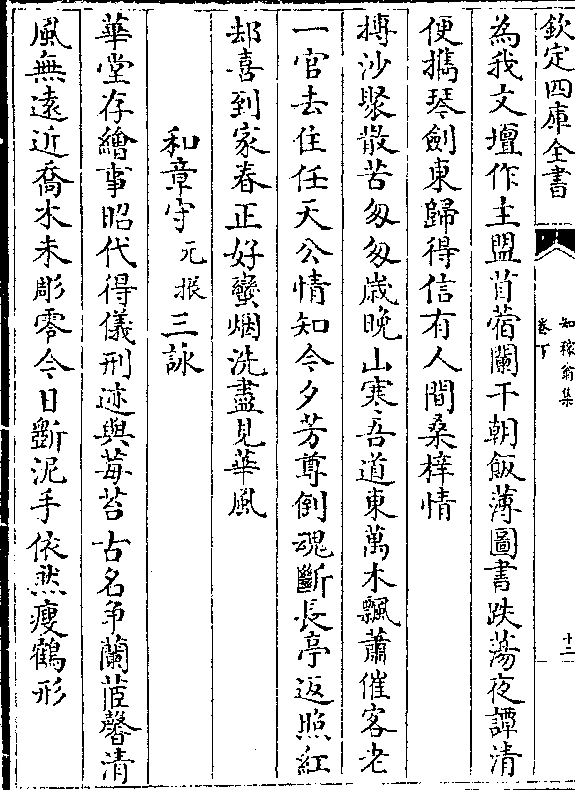 欽定四庫全書
知稼翁集
卷下
十二
為我文壇作主盟苜蓿闌干朝飯薄圖書跌蕩夜譚清
便攜琴劍東歸得信有人間桑梓情
摶沙聚散苦匆匆歲晚山寒吾道東萬木飄蕭催客老
一官去住任天公情知今夕芳尊倒魂斷長亭返照紅
却喜到家春正好蠻烟洗盡見華風
和章守元振三詠
華堂存繪事昭代得儀刑迹與莓苔古名爭蘭茝馨清
風無遠近喬木未彫零今日斵泥手依然瘦鶴形